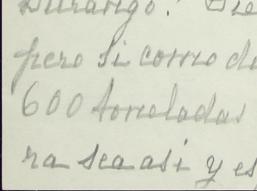 Durango.
pero si como de
600 toneladas
ra sea asi y es